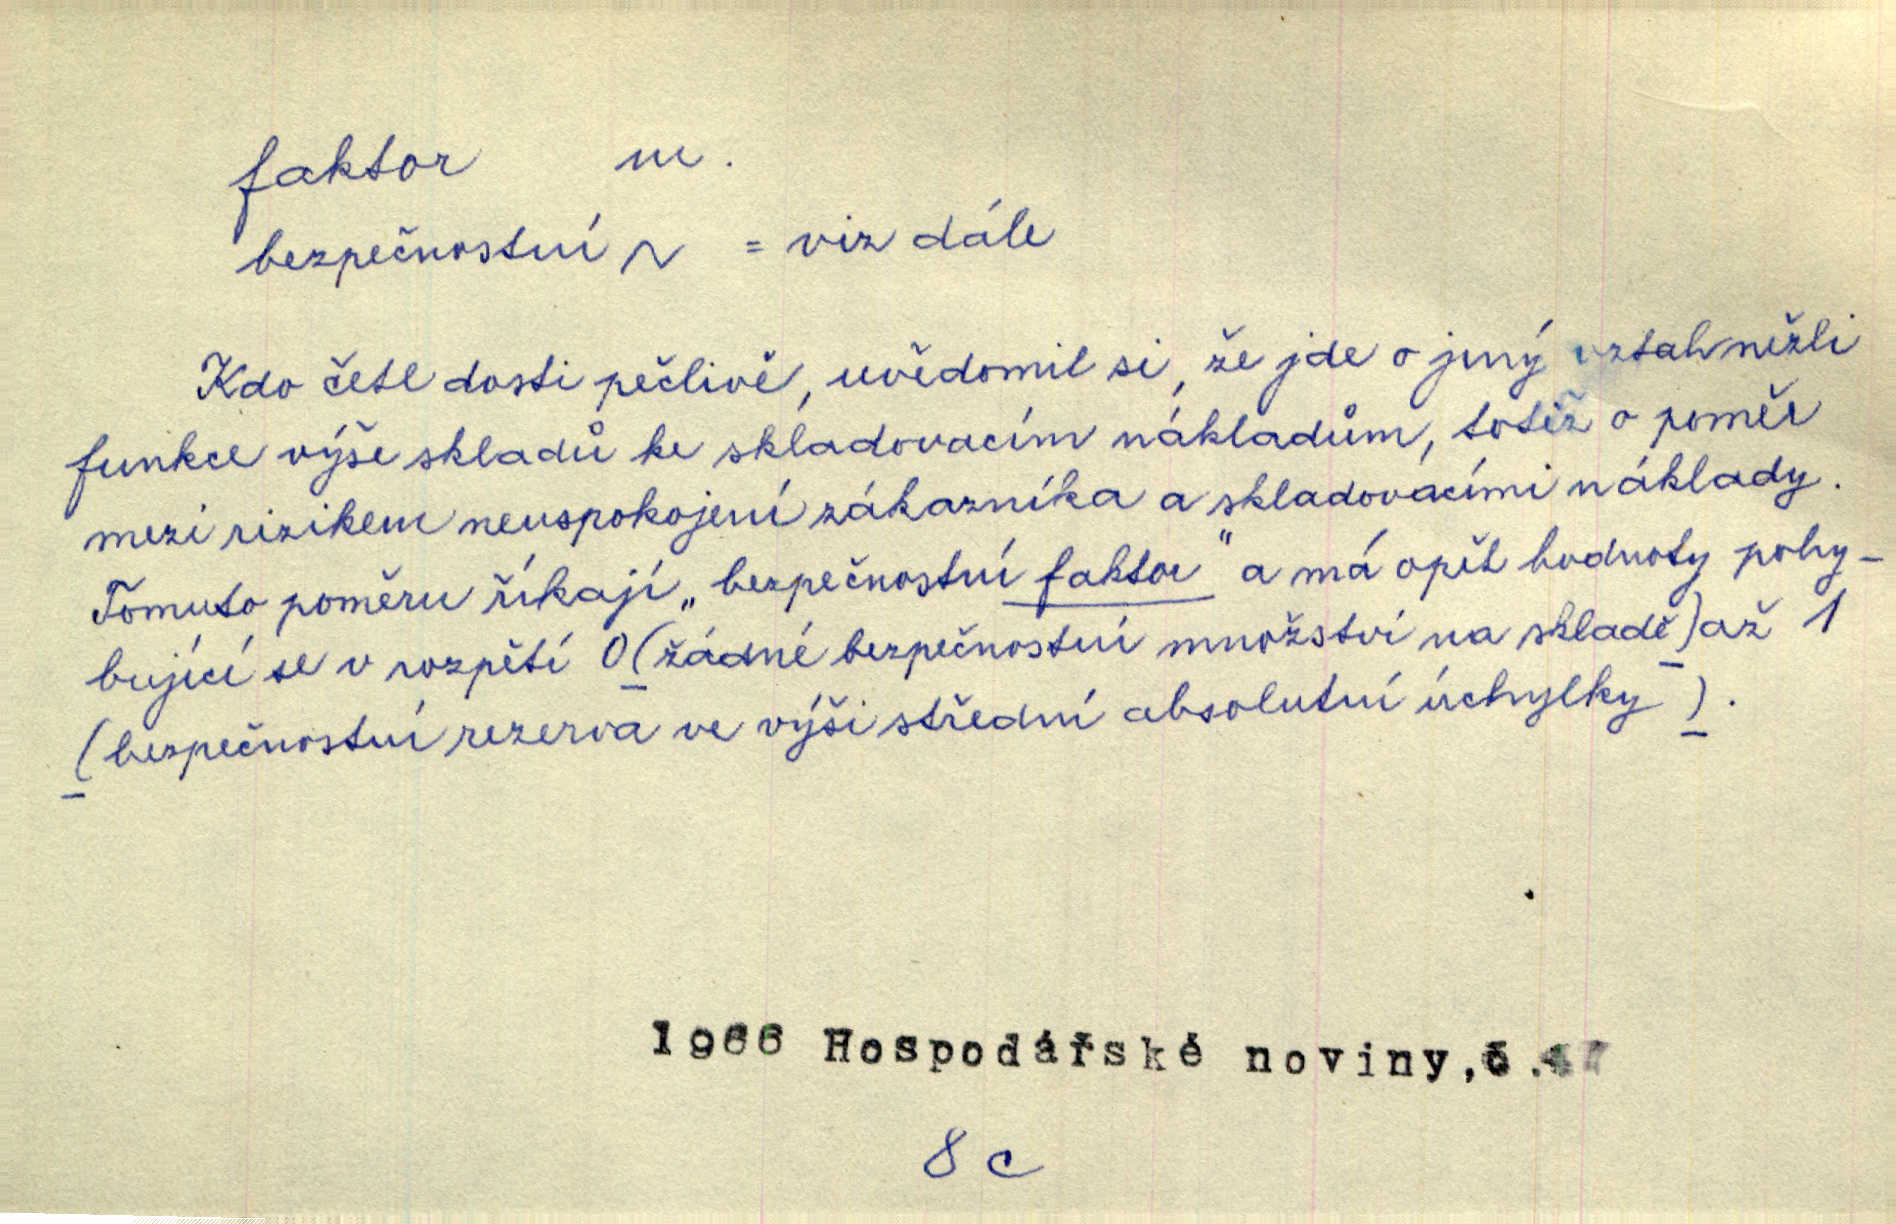 faktor m.
bezpečnostní ~ = viz dále
Kdo četl dosti pečlivě, uvědomil si, že jde o jiný vztah nežli
funkce výše skladů ke skladovacím nákladům, totiž o poměr
mezi rizikem neuspokojení zákazníka a skladovacími náklady.
Tomuto poměru říkají „bezpečnostní faktor" a má opět hodnoty pohy-
bující se v rozpětí 0 (žádné bezpečnostní množství na skladě) až 1
(bezpečnostní rezerva ve výši střední absolutní úchylky).
1966 Hospodářské noviny,č.47
8 c